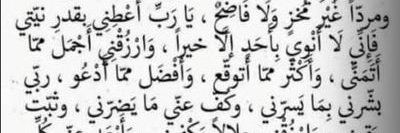 ومرداً غَيْرَ مُخزٍ وَلَا فَاضِحٌ ، يَا رَبِّ أَعْطِنِي بِقَدرِ نِيَّتِي
فَإِنِّي لَا أَنْوِي بِأَحَدٍ إِلَّا خيراً ، وَارْزُقْنِي أَجْمَل ممّا
أَتَمَنَّى ، وَأَكْثَر ممّا أتوقّع ، وَأَفْضَل ممّا أَدْعُو ، ربّي
بشّرني بِمَا يَسرّني ، وكفَّ عنّي مَا يَضرّني ، وثبّت